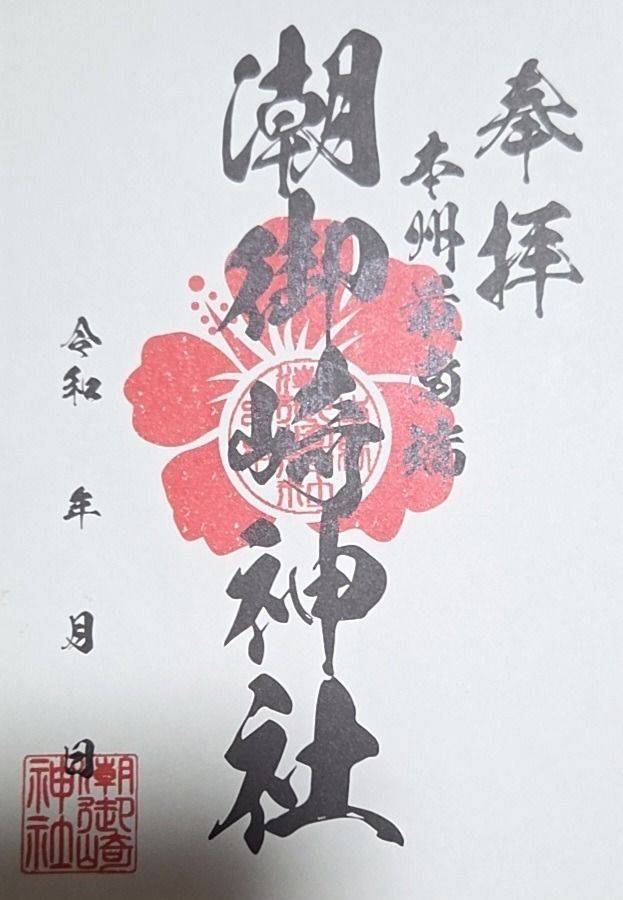 奉拝
本州最南端
潮御崎神社
令和 年 月 日
潮御崎
神社